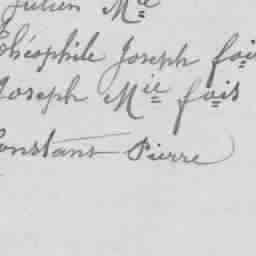 Julien Mie
Théophile Joseph fois
Joseph Mie fois
Constans Pierre